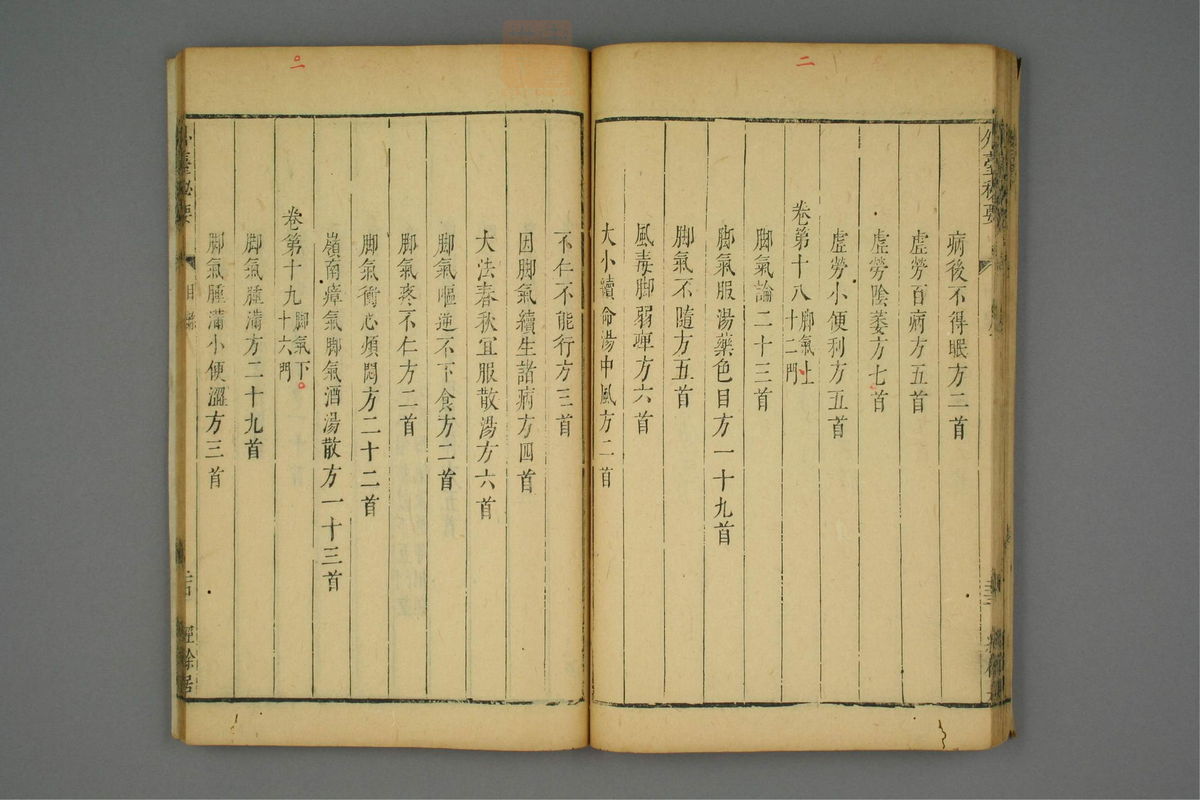 二
外臺秘要
病後不得眠方二首
虛勞百病方五首
虛勞陰萎方七首
虛勞小便利方五首
卷第十八 脚氣上
十二門
脚氣論二十三首
脚氣服湯藥色目方一十九首
脚氣不隨方五首
風毒脚弱痺方六首
大小續命湯中風方二首
不仁不能行方三首
因脚氣續生諸病方四首
大法春秋宜服散湯方六首
脚氣嘔逆不下食方二首
脚氣疼不仁方二首
脚氣衝心煩悶方二十二首
嶺南瘴氣脚氣酒湯散方一十三首
卷第十九 脚氣下
十六門
脚氣腫滿方二十九首
脚氣腫滿小便澀方三首
外臺秘要
目錄
經餘居